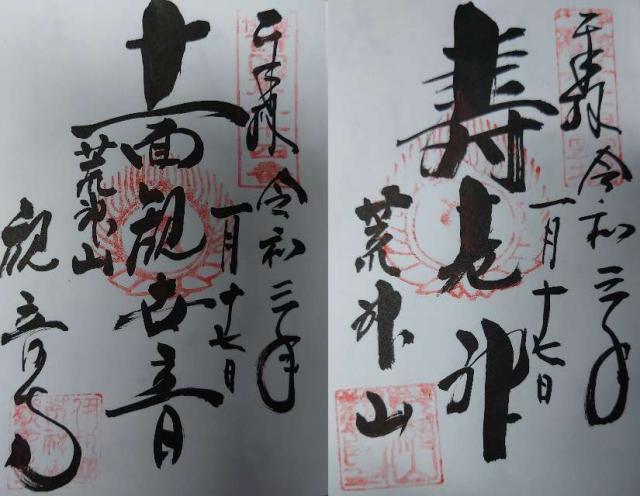 奉拝 令和三年
一月十七日
十一面観世音
荒神山
観音寺
奉拝 令和三年
一月十七日
寿老神
荒神山